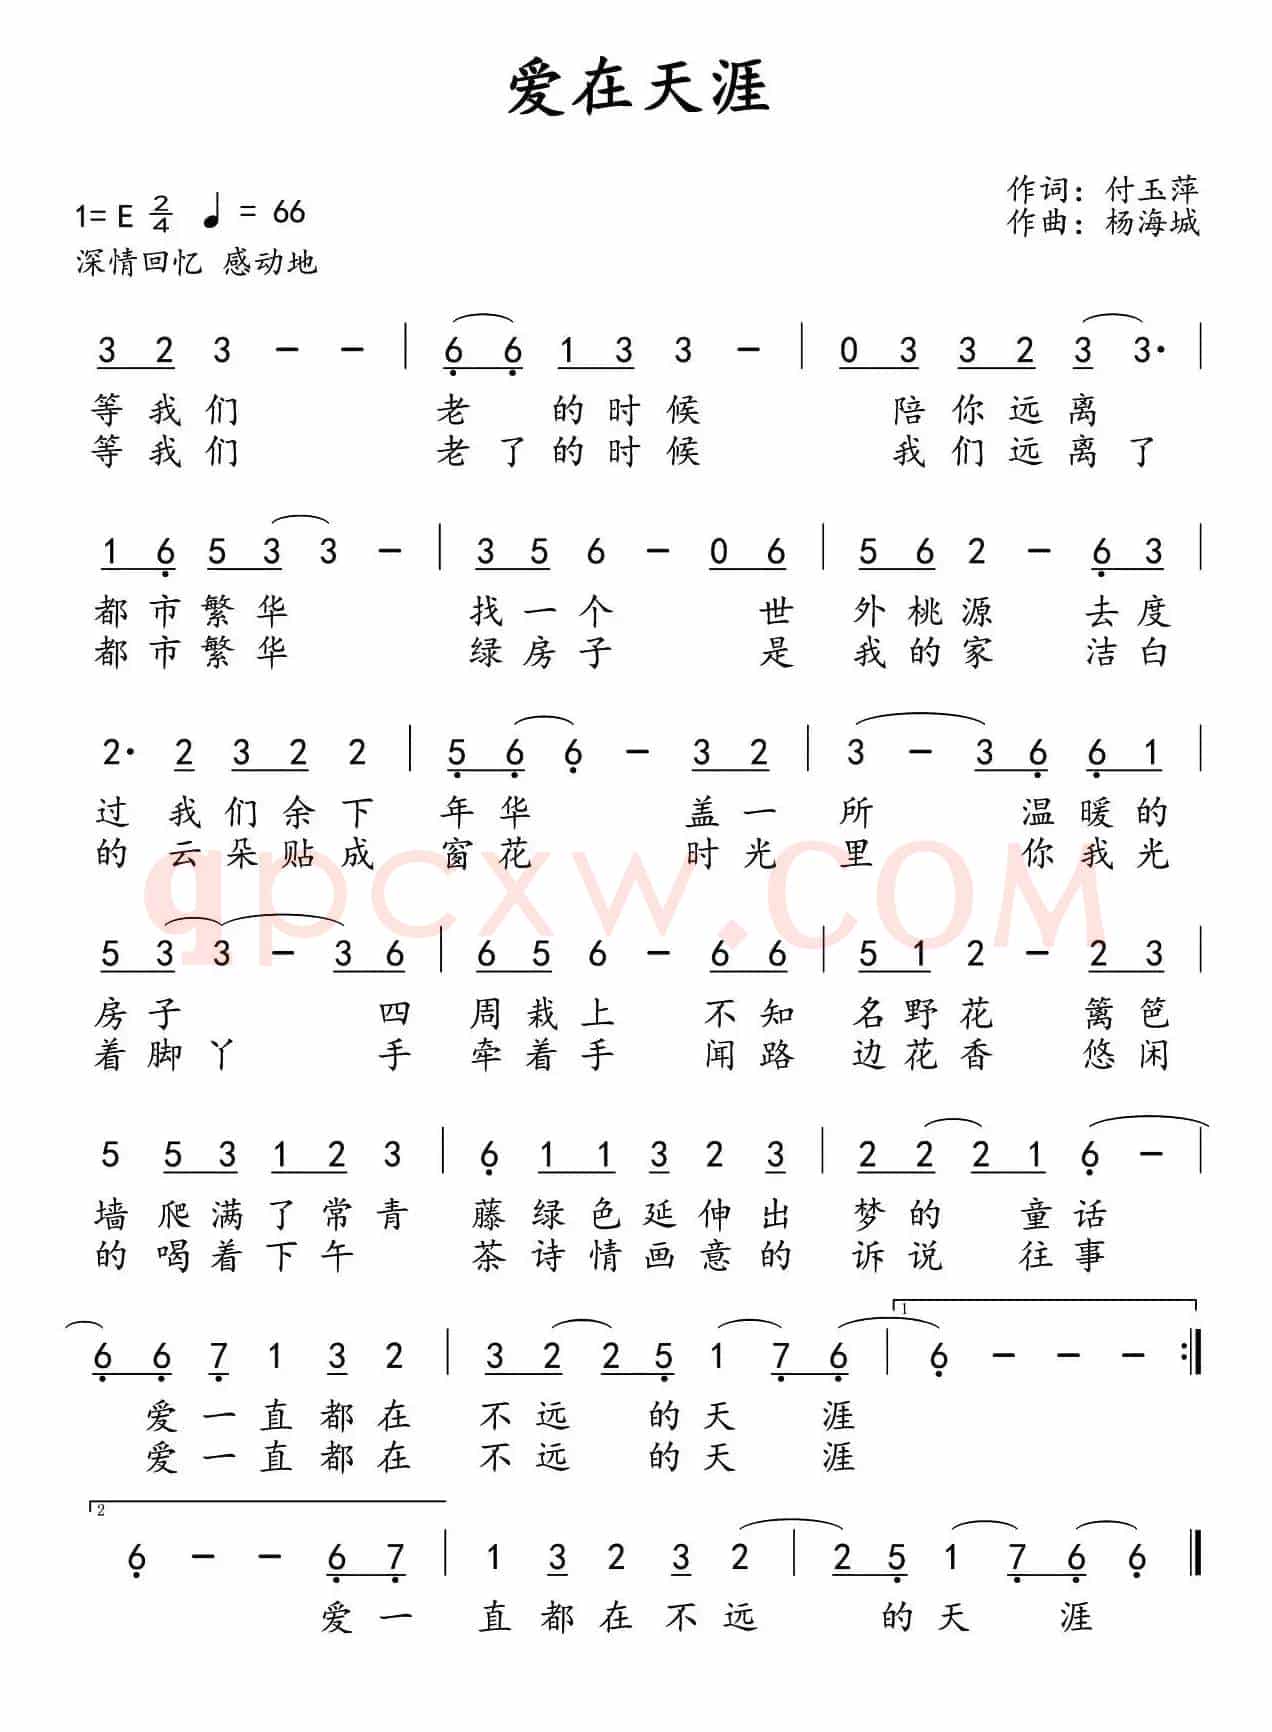 爱在天涯
作词：付玉萍
作曲：杨海城
1= E 2/4 ♩ = 66
深情回忆 感动地
3 2 3 – – | 6 6 1 3 3 – | 0 3 3 2 3 3· |
等我们 老 的时候 陪你远离
等我们 老了的时候 我们远离了
1 6 5 3 3 – | 3 5 6 – 0 6 | 5 6 2 – 6 3 |
都市繁华 找一个 世外桃源 去度
都市繁华 绿房子 是我的家 洁白
2· 2 3 2 2 | 5 6 6 – 3 2 | 3 – 3 6 6 1 |
过我们余下 年华 盖一所 温暖的
的云朵贴成 窗花 时光里 你我光
qpcxw.COM
5 3 3 – 3 6 | 6 5 6 – 6 6 | 5 1 2 – 2 3 |
房子 四周栽上 不知名野花 篱笆
着脚丫 手牵着手 闻路边花香 悠闲
5 5 3 1 2 3 | 6 1 1 3 2 3 | 2 2 2 1 6 – |
墙爬满了常青 藤绿色延伸出 梦的 童话
的喝着下午 茶诗情画意的 诉说 往事
1
6 6 7 1 3 2 | 3 2 2 5 1 7 6 | 6 – – – :‖
爱一直都在 不远 的天 涯
爱一直都在 不远 的天 涯
2
6 – – 6 7 | 1 3 2 3 2 | 2 5 1 7 6 6 ‖
爱一 直都在不远 的天 涯